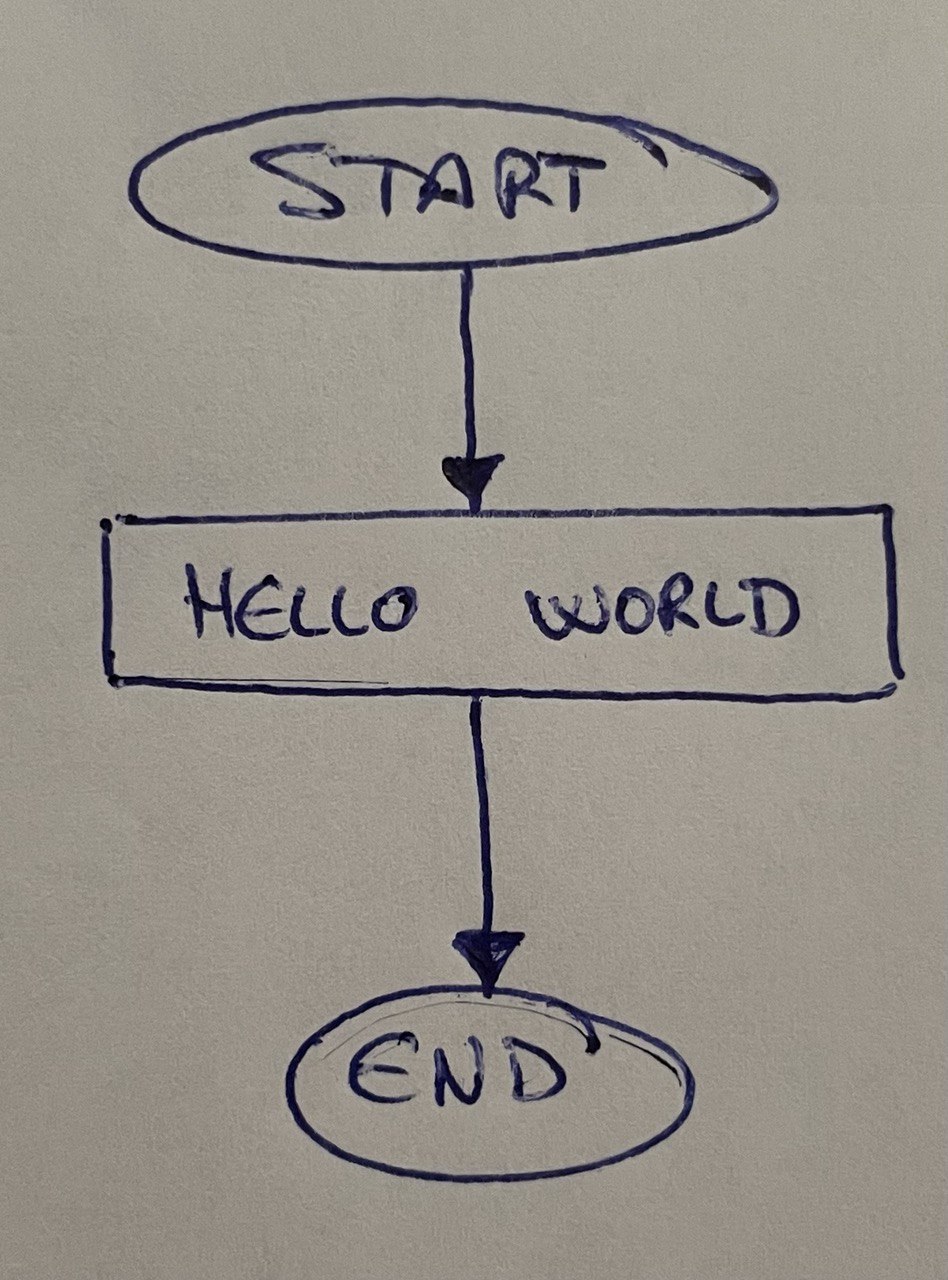 START
HELLO WORLD
END